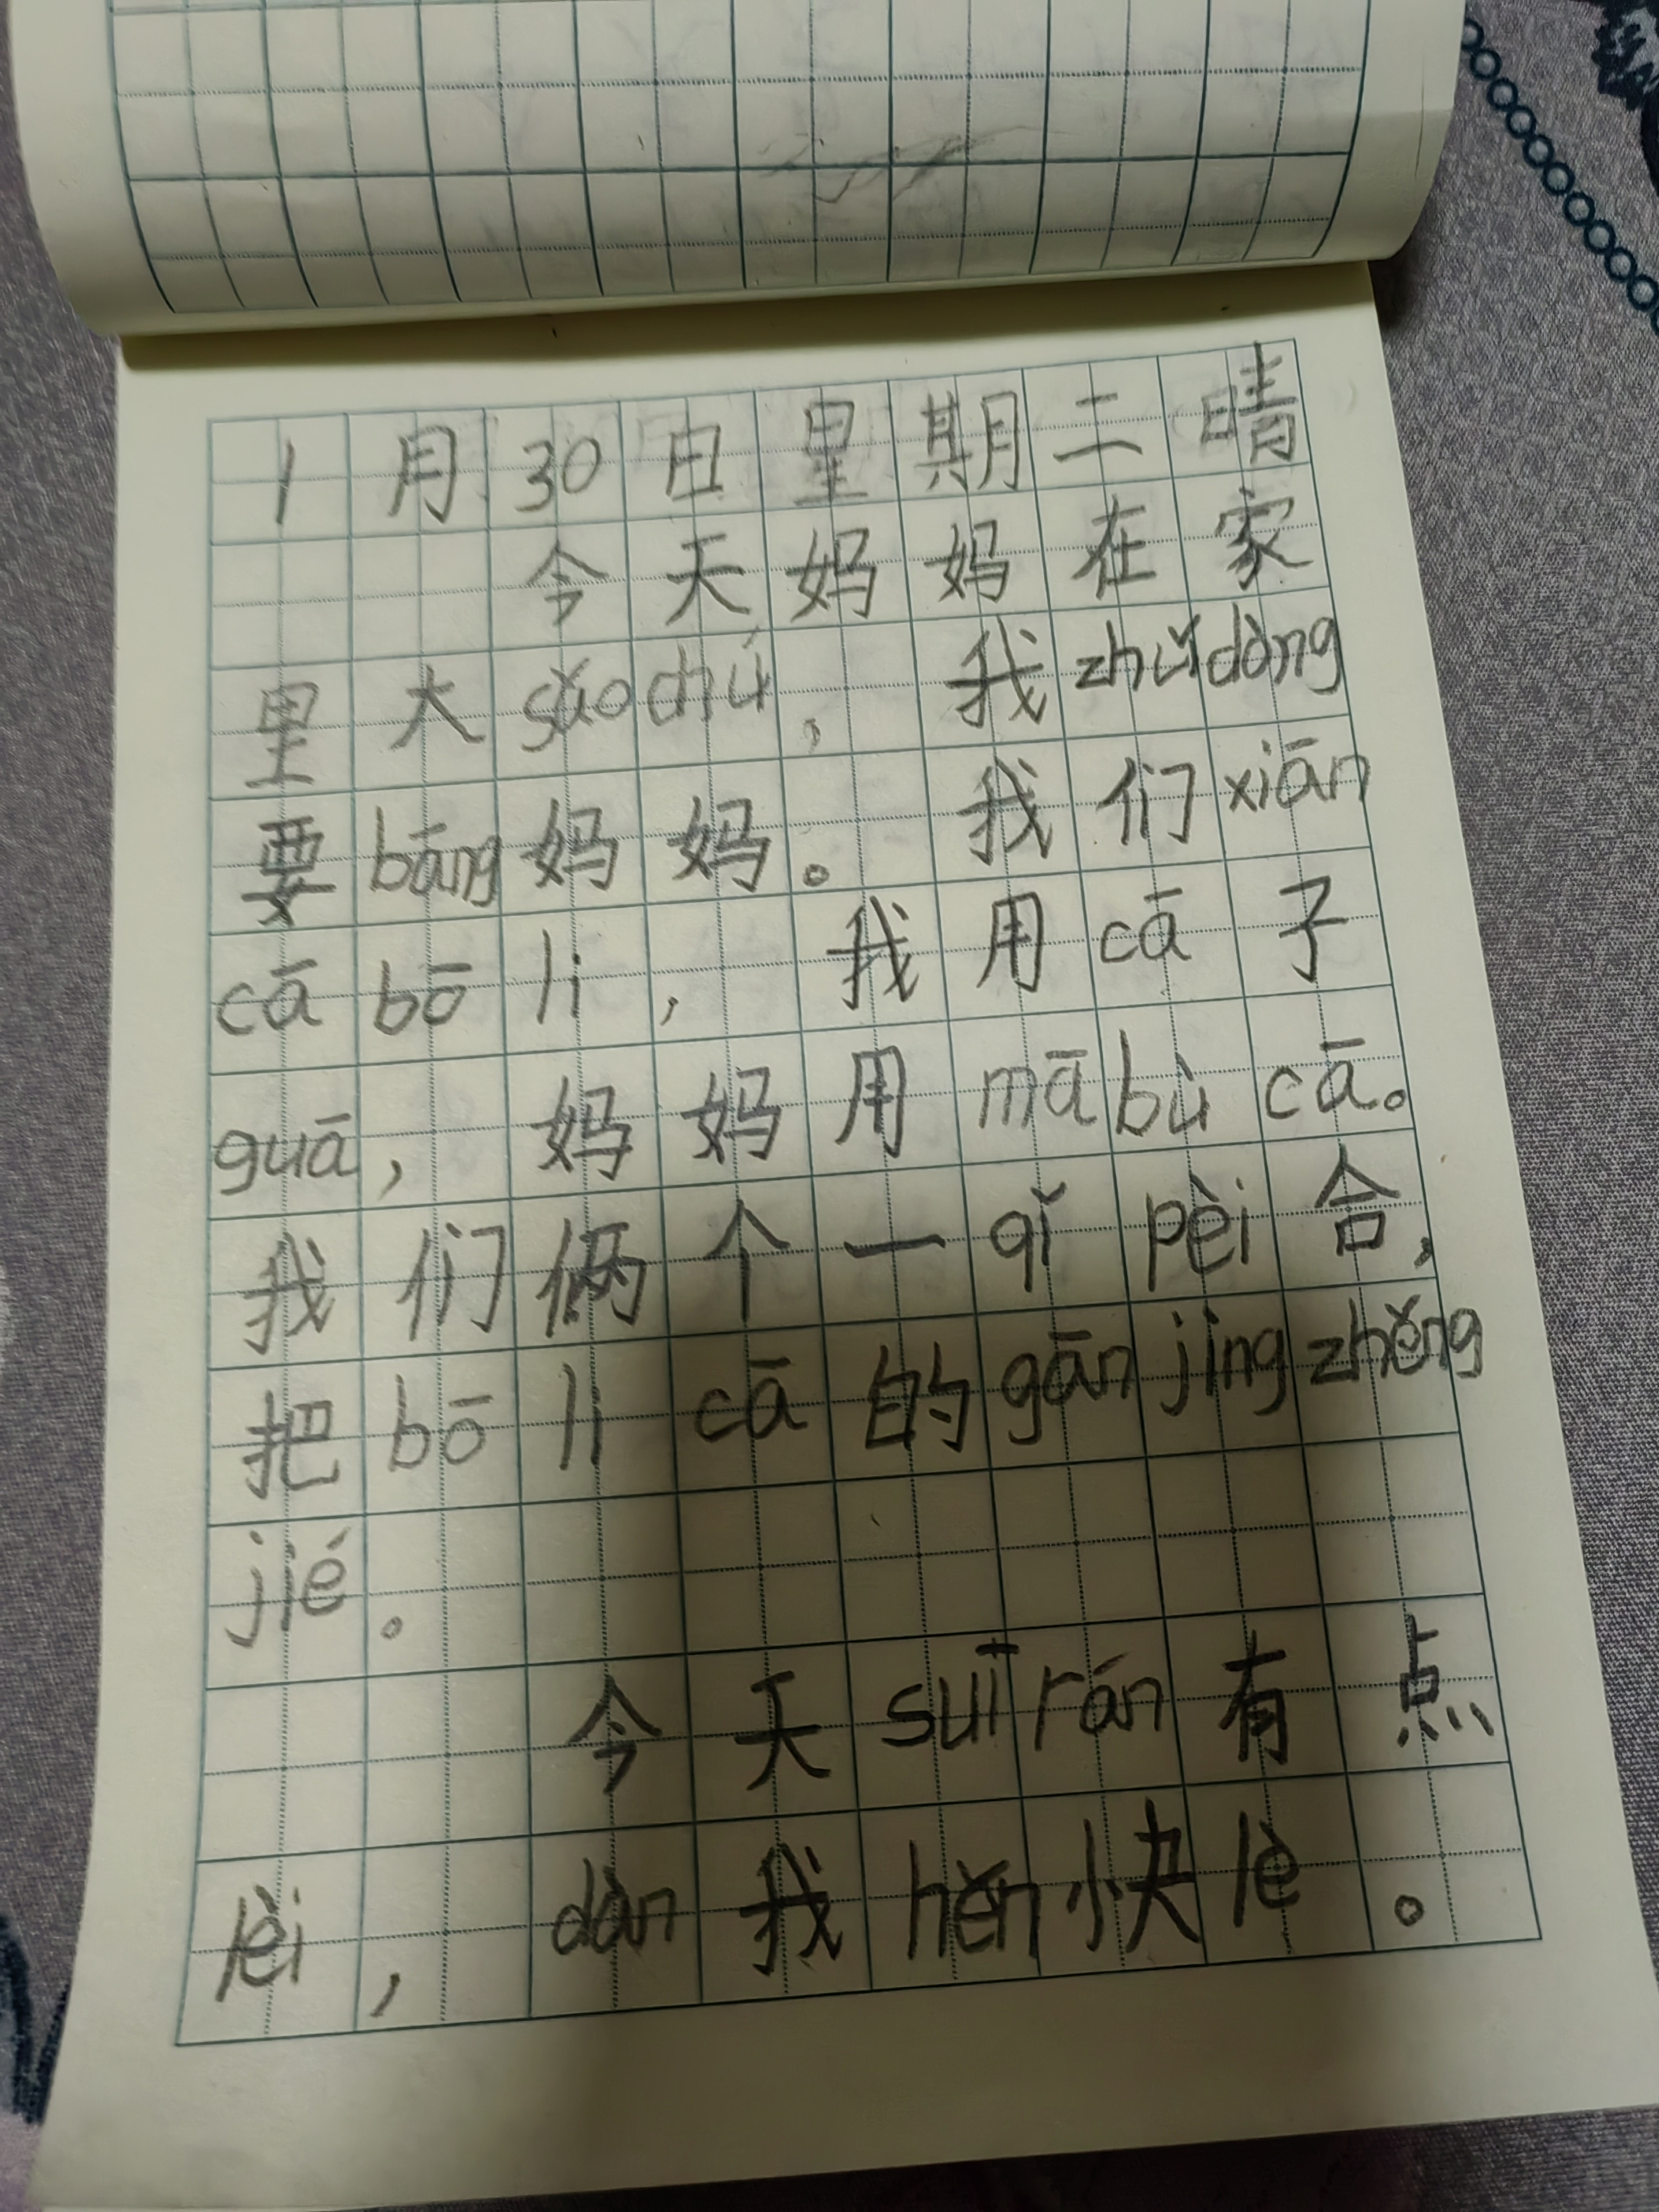 1月30日星期二晴
今天妈妈在家
里大sǎochú，我zhǔdòng
要bāng妈妈。我们xiān
cā bō li，我用cā子
guā，妈妈用mā bù cā。
我们俩个一qǐ pèi合，
把bō li cā的gān jìng zhěng
jié。
今天suī rán有点
lèi，dàn我hěn快lè。